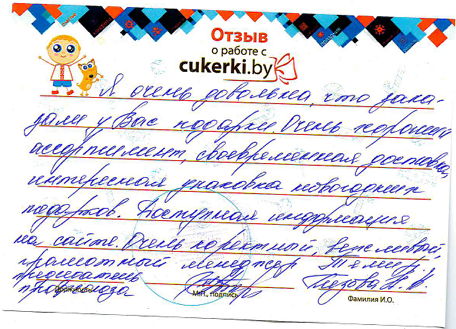 Отзыв
о работе с
cukerki.by
Я очень довольна, что зака-
зали у Вас подарки. Очень хороший
ассортимент, своевременная доставка,
интересная упаковка новогодних
подарков. Доступная информация
на сайте. Очень корректный, вежливый,
грамотный менеджер
председатель
профсоюза
М.П., подпись
Фамилия И.О.